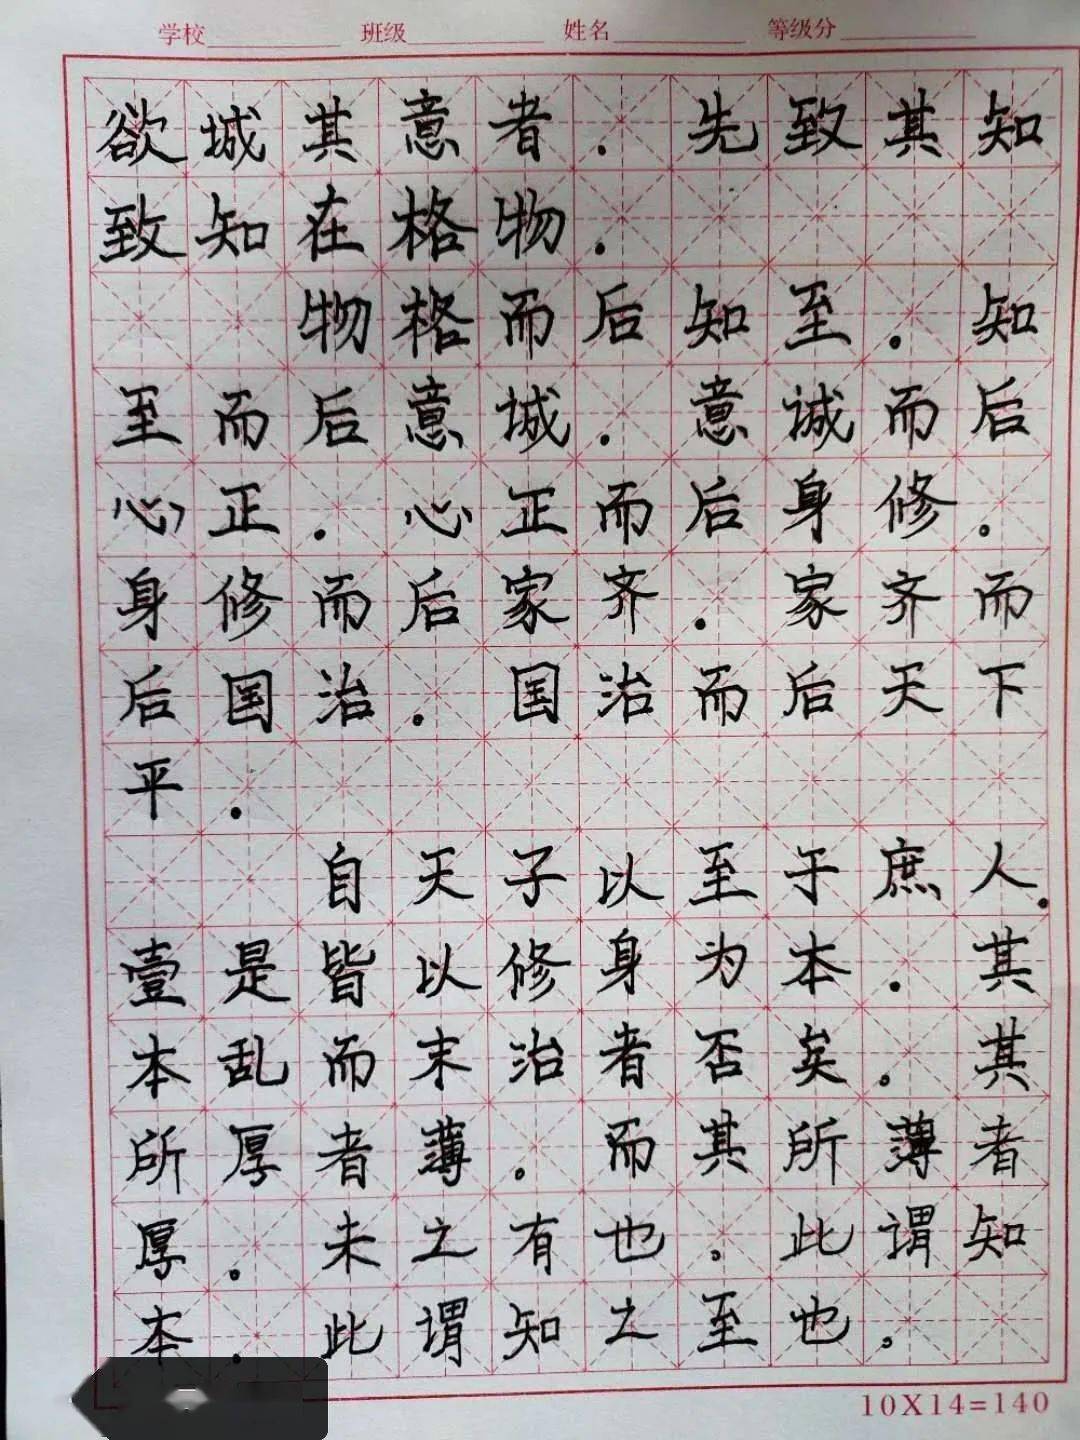 学校 班级 姓名 等级分
欲城其意者.先致其知
致知在格物.
物格而后知至.知
至而后意诚.意诚而后
心正.心正而后身修。
身修而后家齐.家齐而
后国治.国治而后天下
平.
自天子以至于庶人.
壹是皆以修身为本.其
本乱而末治者否矣。其
所厚者薄.而其所薄者
厚。未之有也。此谓知
本.此谓知之至也。
10X14=140